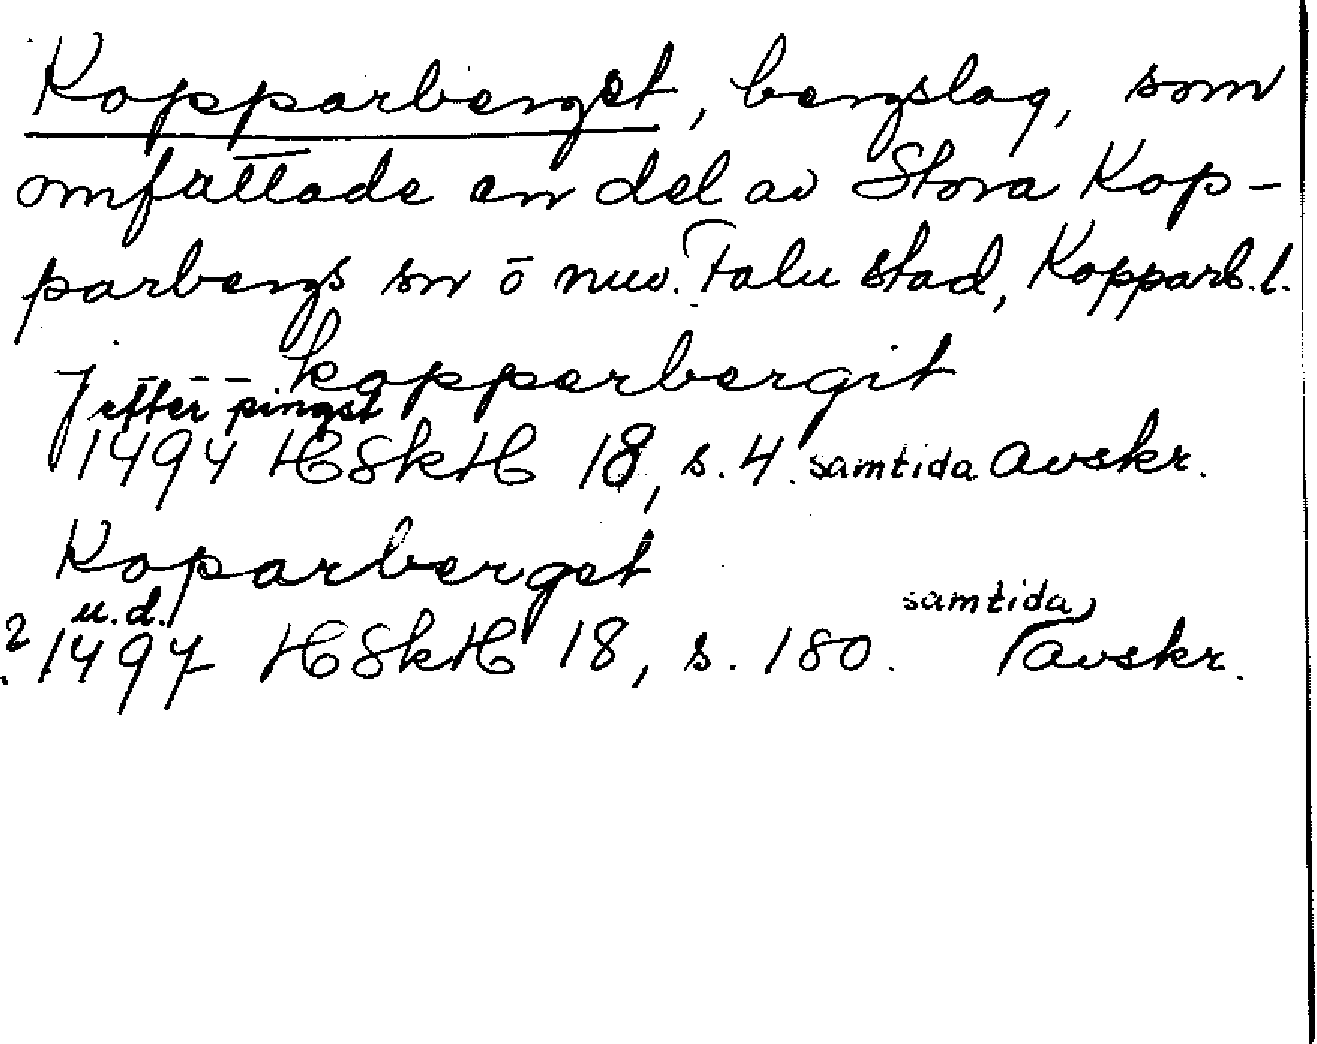 Kopparberget, bergslag, som
omfattade en del av Stora Kop-
parbergs sn o nuv. Falu stad, Kopparb. l.
j - - - kopparbergit
efter pingst
1494 HSkH 18, s. 4. samtida avskr.
Koparberget
u.d. samtida
? 1497 HSkH 18, s. 180. avskr.